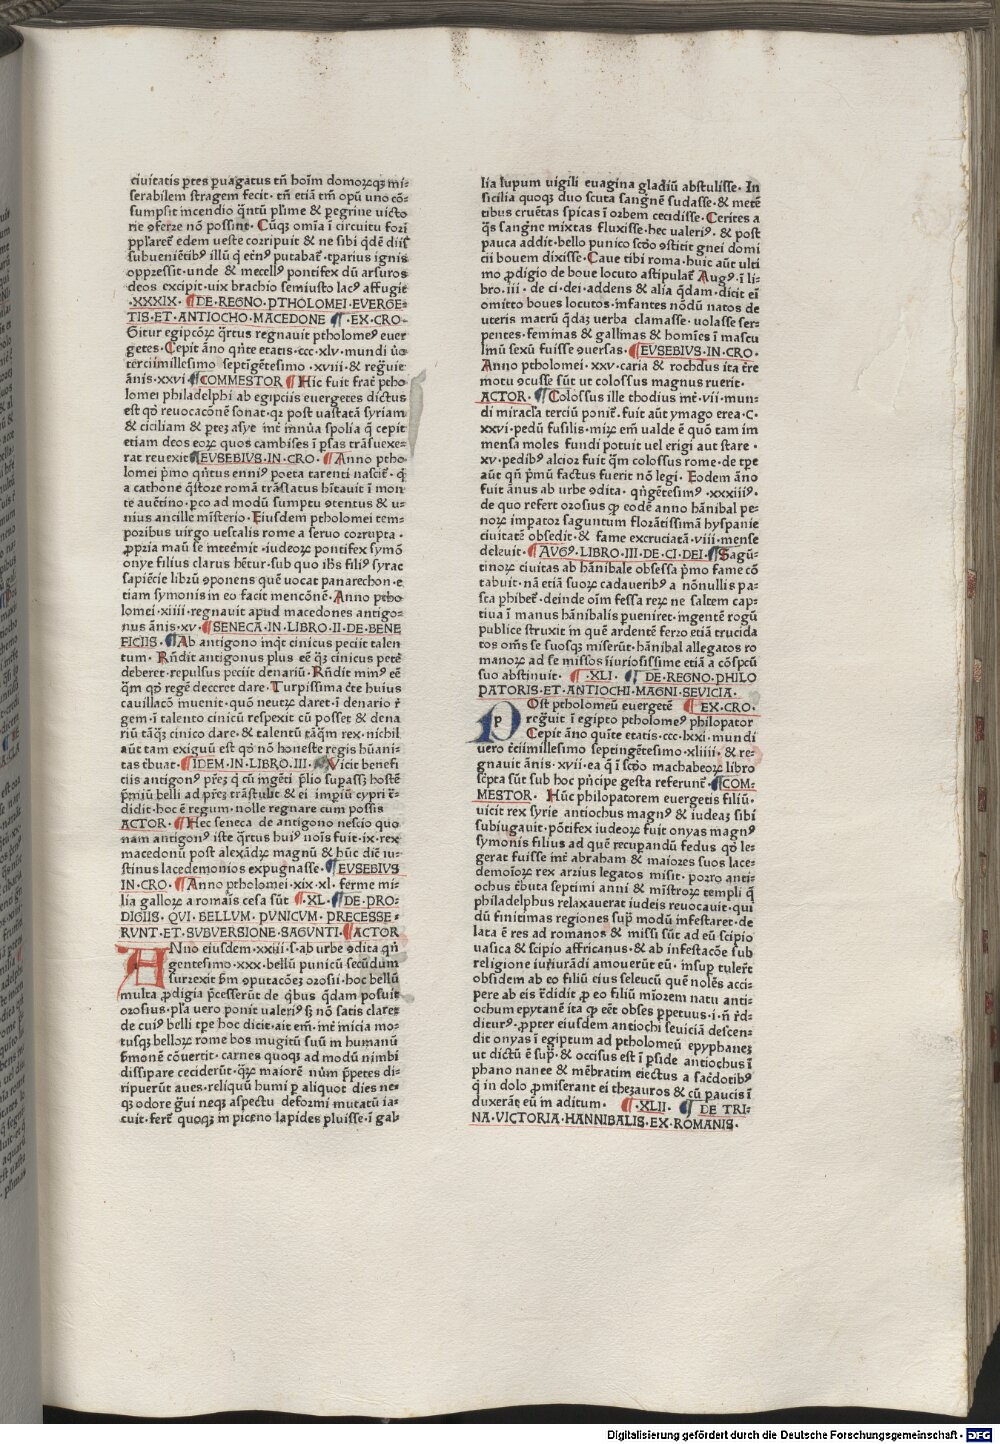 ciuitatis ꝑtes ꝑuagatus tñ hoim̄ domoꝝqꝫ mi-
serabilem stragem fecit· tñ etiā tm̄ opū uno cō-
sumpsit incendio q̄ntū pl'ime & ꝑegrine uicto
rie ꝯferre nō possint· Cūqꝫ omīa ī circuitu forī
ꝓplaret' edem ueste corripuit & ne sibi q̄dē diis
subueniētibꝰ illū q̄ etn̄ꝰ putabat' tꝑarius ignis
oppressit· unde & metellꝰ pontifex dū arsuros
deos excipit· uix brachio semiusto lacꝰ affugit
·XXXIX· ¶ DE·REGNO·PTHOLOMEI·EVERGE-
TIS·ET·ANTIOCHO·MACEDONE ¶ ·EX·CRO·
Gitur egipcōꝝ q̄rtus regnauit ptholomeꝰ euer
getes· Cepit āno qn̄te etatis·ccc·xlv·mundi uo
terciimillesimo septīgētesimo ·xviii· & reg̃uit
ānis·xxvi· ¶ COMMESTOR ¶ Hic fuit frat' ptho
lomei philadelphi ab egipciis euergetes dictus
est qd' reuocacōnē sonat· qꝛ post uastatā syriam
& ciliciam & ꝑteꝫ asye int' īnn̄ua spolia q̄ cepit
etiam deos eoꝝ quos cambises ī ꝑsas trāsuexe-
rat reuexit ¶ EVSEBIVS·IN·CRO· ¶ Anno ptho
lomei pr̄mo qn̄tus enniꝰ poeta tarenti nascit'· q̄
a cathone q̄store romā trāslatus hītauit ī mon
te auētino· ꝑco ad modū sumptu ꝯtentus & u-
nius ancille mīsterio· Eiusdem ptholomei tem-
poribus uirgo uestalis rome a seruo corrupta·
ꝓpria maū se īnteēmit· iudeoꝝ pontifex symō
onye filius clarus hētur· sub quo ih̄s filiꝰ syrac
sapiēcie librū ꝯponens quē uocat panarethon·e
tiam symonis in eo facit mencōnē· Anno ptho-
lomei·xiiii·regnauit apud macedones antigo-
nus ānis·xv· ¶ SENECA·IN·LIBRO·II·DE·BENE
FICIIS· ¶ Ab antigono īnqt' cinicus peciit talen
tum· Rn̄dit antigonus plus eē q̄ꝫ cinicus peťe
deberet· repulsus peciit denariū· Rn̄dit minꝰ eē
q̄m qd' regē deceret dare· Turpissima ēte huius
cauillacō inuenit· quō neutꝝ daret·ī denario r̄
gem· ī talento cinicū respexit cū posset & dena
riū tāq̄ꝫ cinico dare· & talentū tāq̄m rex· nichil
aūt tam exiguū est qd' nō honeste regis hūani-
tas tb̄uat· ¶ IDEM·IN·LIBRO·III· ¶ Vicit benefi
ciis antigonꝰ pr̄eꝫ q̄ cū īngēti ꝑlio suꝑassꝫ hostē
pr̄miū belli ad pr̄eꝫ trāstulit & ei īmꝑiū cypri r̄-
didit· hoc ē regnum· nolle regnare cum possis
ACTOR· ¶ Hec seneca de antigono nescio quo
nam antigonꝰ iste q̄rtus huiꝰ noīs fuit· ix·rex
macedonū post alexādꝝ magnū & hūc diē iu-
stinus lacedemonios expugnasse· ¶ EVSEBIVS
IN·CRO· ¶ Anno ptholomei·xix·xl· ferme mi-
lia galloꝝ a romaīs cesa sūt ¶ ·XL· ¶ DE·PRO-
DIGIIS· QVI·BELLVM·PVNICVM·PRECESSE-
RVNT·ET·SVBVERSIONE·SAGVNTI· ¶ ACTOR
ANno eiusdem·xxiii·s·ab urbe ꝯdita qn̄
gentesimo·xxx·bellū punicū secūdum
surrexit ꝑm ꝯputacōeꝫ orosii· hoc bellū
multa ꝓdigia ꝑcesserūt de q̄bus q̄dam posuit
orosius· pl'a uero ponit ualeriꝰ sꝫ nō satis claret
de cuiꝰ belli tꝑe hoc dicit· ait em̄· int' īnicia mo-
tusqꝫ belloꝝ rome bos mugitū suū in humanū
ſmonē cōuertit· carnes quoqꝫ ad modū nimbi
dissipare ceciderūt· q̄ꝝ maiorē nūm ꝑpetes di-
ripuerūt aues· reliquū humi ꝑ aliquot dies ne-
qꝫ odore g̃ui neqꝫ aspectu deformi mutatū ia-
cuit· fert' quoqꝫ in piceno lapides pluisse· ī gal-
lia lupum uigili euagina gladiū abstulisse· In
sicilia quoqꝫ duo scuta sangnē sudasse· & metē
tibus cruētas spicas ī orbem cecidisse· Cerites a
q̄s sangne mixtas fluxisse· hec ualeriꝰ· & post
pauca addit· bello punico scd'o ꝯstitit gnei domi
cii bouem dixisse· Caue tibi roma· huic aūt ulti
mo ꝓdigio de boue locuto astipulat' Augꝰ· ī li-
bro·iii· de ci·dei·addens & alia q̄dam· dicit eī
omitto boues locutos·infantes nōdū natos de
uteris matrū q̄daꝫ uerba clamasse· uolasse ser-
pentes· feminas & gallinas & homīes ī mascu
linū sexū fuisse ꝯuersas· ¶ EVSEBIVS·IN·CRO·
Anno ptholomei·xxv·caria & rochdus ita t're
motu ꝯcusse sūt ut colossus magnus rueret·
ACTOR· ¶ Colossus ille rhodius int'·vii·mun-
di miracl'a terciū ponit'· fuit aūt ymago erea·C·
xxvi·pedū fusilis· miꝝ em̄ ualde ē quō tam im
mensa moles fundi potuit uel erigi aut stare·
xv·pedibꝰ alcior fuit q̄m colossus rome· de tꝑe
aūt qn̄ pr̄mū factus fuerit nō legi· Eodem āno
fuit ānus ab urbe ꝯdita·qn̄gētesimꝰ·xxxiiiꝰ·
de quo refert orosius qd' eodē anno hānibal pe-
noꝝ īmpator saguntum florātissimā hyspanie
ciuitatē obsedit· & fame excruciatā·viii·mense
deleuit· ¶ AVGꝰ·LIBRO·III·DE·CI·DEI· ¶ Sagū-
tinoꝝ ciuitas ab hānibale obsessa pr̄mo fame cō
tabuit· nā etiā suoꝝ cadaueribꝰ a nōnullis pa-
sta ꝑhibet'· deinde oīm fessa reꝝ ne saltem cap-
tiua ī manus hānibalis ꝑueniret· īngentē rogū
publice struxit in quē ardentē ferro etiā trucida
tos om̄s se suosqꝫ miserūt· hānibal allegatos ro
manoꝝ ad se missos īiuriosissime etiā a cōspcū
suo abstinuit· ¶ ·XLI· ¶ DE·REGNO·PHILO
PATORIS·ET·ANTIOCHI·MAGNI·SEVICIA·
POst ptholomeū euergetē ¶ EX·CRO·
reg̃uit ī egipto ptholomeꝰ philopator
Cepit āno quīte etatis·ccc·lxxi·mundi
uero t̄ciimillesimo septingētesimo·xliiii· & re-
gnauit ānis·xvii·ea q̄ ī scd'o machabeoꝝ libro
scp̄ta sūt sub hoc pn̄cipe gesta referunt'· ¶ COM-
MESTOR· Hūc philopatorem euergetis filiū·
uicit rex syrie antiochus magnꝰ & iudeaꝫ sibi
subiugauit· pōtifex iudeoꝝ fuit onyas magnꝰ
symonis filius ad quē recuꝑandū fedus qd' le-
gerat fuisse int' abraham & maiores suos lace-
demoīoꝝ rex arrius legatos misit· porro anti-
ochus tb̄uta septimi anni & mīstroꝝ templi q̄
philadelphus relaxauerat iudeis reuocauit· qui
dū finitimas regiones supꝰ modū īnfestaret· de
lata ē res ad romanos & missi sūt ad eū scipio
uasica & scipio affricanus· & ab infestacōe sub
religione iuriurādi amouerūt eū· īnsup tulert'
obsidem ab eo filiū eius seleucū quē nolēs acci-
pere ab eis r̄didit ꝓ eo filiū mīorem natu anti-
ochum epytanē ita qd' eēt obses ꝑpetuus· i·ñ r̄d-
ditur'· ꝓpter eiusdem antiochi seuiciā descen-
dit onyas ī egiptum ad ptholomeū epyphaneꝫ
ut dictū ē supꝰ· & occisus est ī ꝑside antiochus ī
phano nanee & mēbratim eiectus a sac̄dotibꝰ
q̄ in dolo ꝓmiserant ei thezauros & cū paucis ī
duxerāt eū in aditum· ¶ ·XLII· ¶ DE TRI-
NA·VICTORIA·HANNIBALIS·EX·ROMANIS·
Digitalisierung gefördert durch die Deutsche Forschungsgemeinschaft · DFG